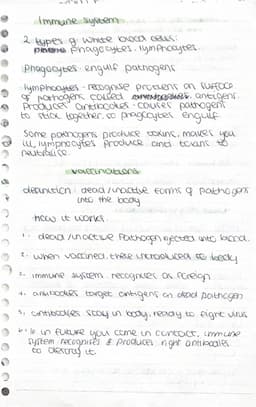 Immune System
2 types of white blood cells:
phagocytes, lymphocytes.
Phagocytes - engulf pathogens
lymphocytes - recognise proteins on surface
of pathogens called antigens.
Produces antibodies - causes pathogens
to stick together, so phagocytes engulf
Some pathogens produce toxins, makes you
ill, lymphocytes produce anti toxins to
neutralise
vaccinations
definition: dead/inactive forms of pathogens
into the body
how it works.
1. dead/inactive pathogen injected into blood.
2. when vaccined, these introduced to body
3. immune system recognises as foreign
4. antibodies target antigens on dead pathogen
5. antibodies stay in body, ready to fight virus
6. if in future you come in contact, immune
system recognises & produces right antibodies
to destroy it.